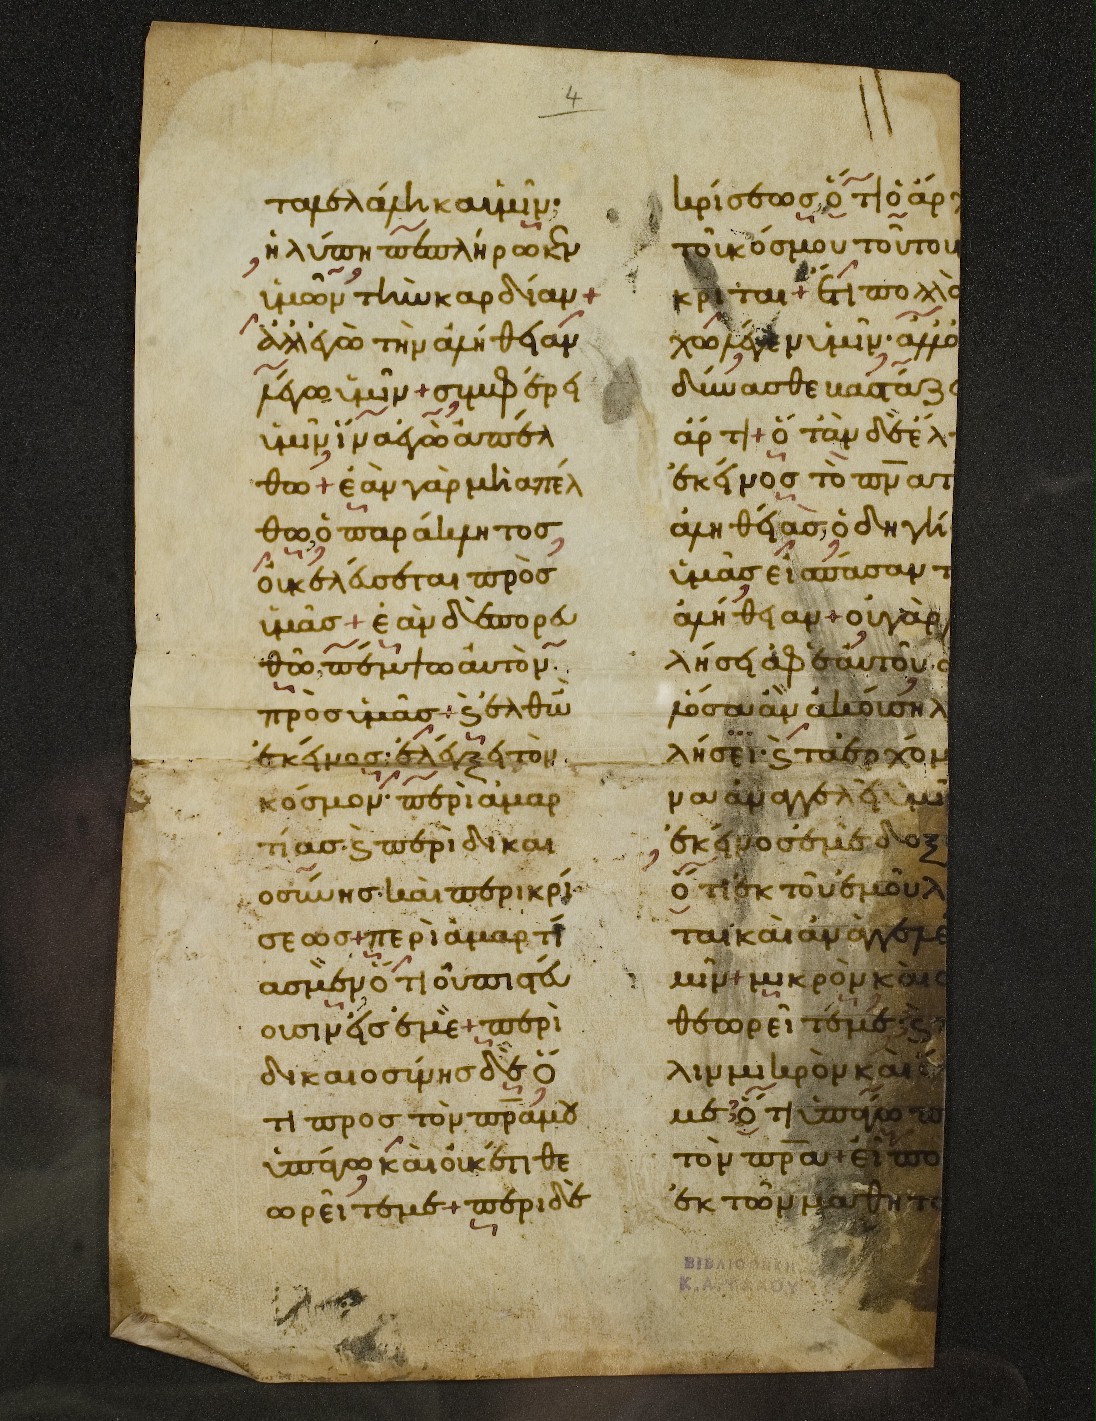 4
ταῦτα λελάληκα ὑμῖν·
ἡ λύπη πεπλήρωκεν
ὑμῶν τὴν καρδίαν +
ἀλλ ἐγὼ τὴν ἀλήθειαν
λέγω ὑμῖν + συμφέρει
ὑμῖν ἵνα ἐγὼ ἀπέλ
θω + ἐὰν γὰρ μὴ ἀπέλ
θω, ὁ παράκλητος
οὐκ ἐλεύσεται πρὸς
ὑμᾶς + ἐὰν δὲ πορευ
θῶ, πέμψω αὐτὸν
πρὸς ὑμᾶς + ϗ ἐλθὼν
ἐκεῖνος· ἐλέγξει τὸν
κόσμον· περὶ ἁμαρ
τίας· ϗ περὶ δικαι
οσύνης· καὶ περὶ κρί
σεως + περὶ ἁμαρτί
ας μὲν ὅτι οὐ πιστεύ
ουσιν εἰς ἐμέ + περὶ
δικαιοσύνης δὲ ὅ
τι προς τὸν πρ̅α μου
ὑπάγω καὶ οὐκέτι θε
ωρεῖτέ με + περι δὲ
κρίσεως, ὅτι ὁ ἄρχ
τοῦ κόσμου τούτου
κριται + ἔτι πολλὰ
χω λέγειν ὑμῖν· ἀλλ ὀ
δύνασθε βαστάζε
ἄρτι + ὅταν δὲ ἔλ
ἐκεῖνος τὸ πν̅α τ
ἀληθείας, ὁδηγή
ὑμᾶς εἰ πάσαν τ
ἀλήθειαν + οὐ γὰρ
λήσει ἀφ ἑαυτοῦ
λ ὅσα ἂν ἀκούσῃ λ
λήσει· ϗ τὰ ἐρχόμ
να ἀναγγελεῖ ὑμῖ
ἐκεῖνος ἐμὲ δοξ
ὅτι ἐκ τοῦ ἐμοῦ λ
ται καὶ ἀναγγελεῖ
μῖν + μικρὸν καὶ ο
θεωρεῖτέ με· ϗ
λιν μικρὸν καὶ
με, ὅτι ὑπάγω π
τὸν πρ̅α + εἶπο
ἐκ τῶν μαθητῶ
ΒΙΒΛΙΟΘΗΚΗ